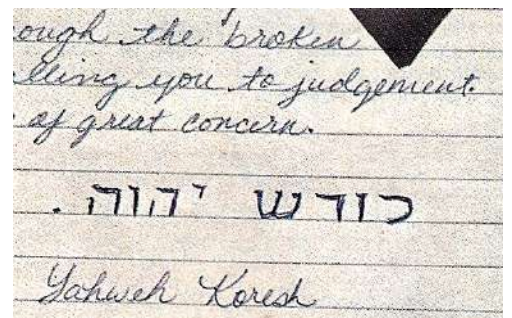 ough the broken
lling you to judgement.
of great concern.
כורש יהוה.
Yahweh Koresh